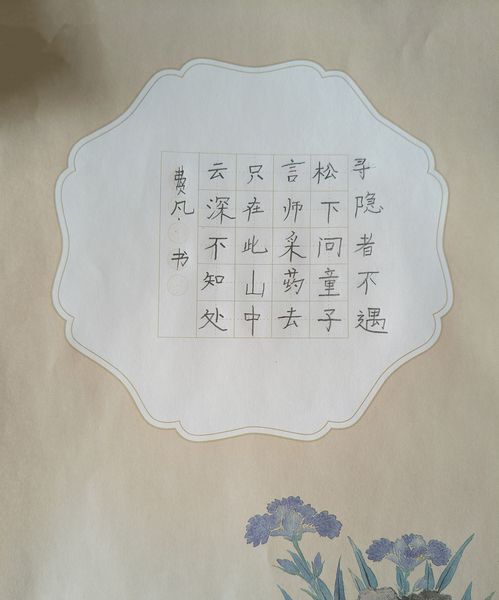 寻隐者不遇
松下问童子
言师采药去
只在此山中
云深不知处
费凡书